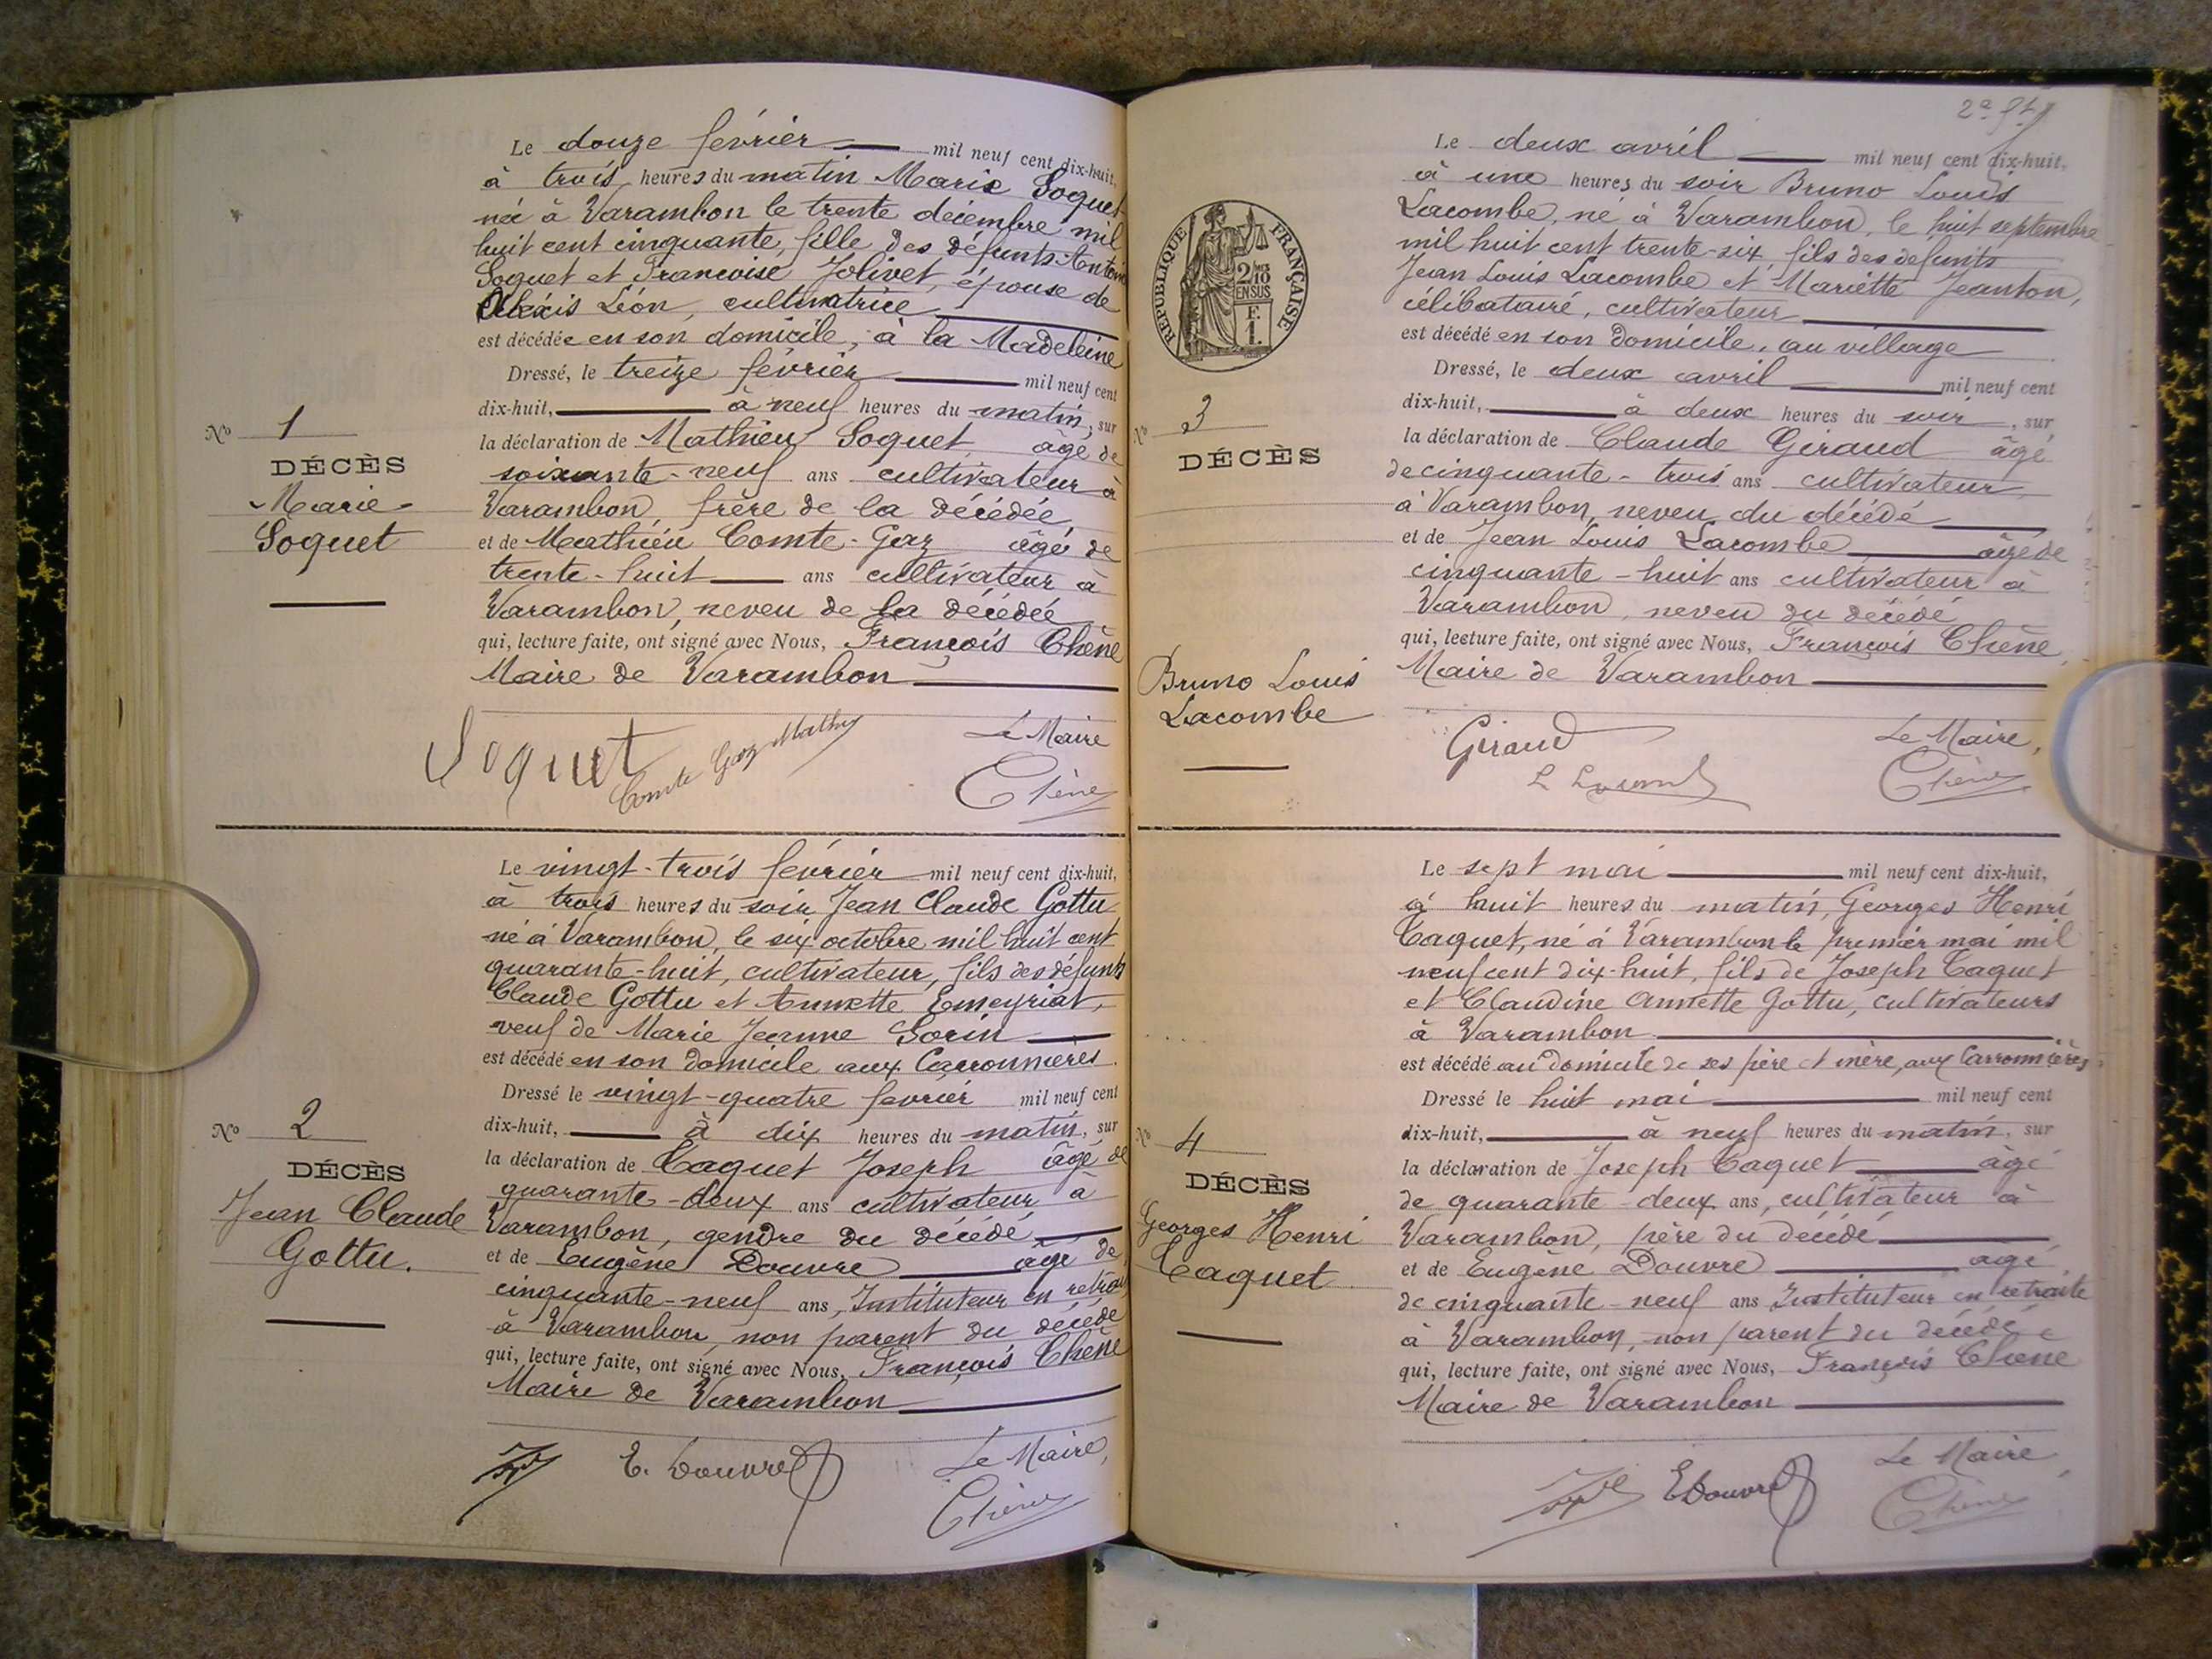 Le douze février mil neuf cent dix-huit,
à trois heures du matin Marie Soquet
née à Varambon le trente décembre mil
huit cent cinquante, fille des défunts Antoine
Soquet et Francoise Jolivet, épouse de
Alexis Léon, cultivatrice
est décédée en son domicile, à la Madeleine
Dressé, le treize février mil neuf cent
dix-huit, à neuf heures du matin, sur
la déclaration de Mathieu Soquet, âgé de
soixante-neuf ans cultivateur à
Varambon, frère de la décédée,
et de Mathieu Comte-Gaz âgé de
trente-huit ans cultivateur à
Varambon, neveu de la décédée
qui, lecture faite, ont signé avec Nous, François Chêne
Maire de Varambon
No 1
DÉCÈS
Marie
Soquet
Soquet
Comte Gaz Mathieu
Le Maire
Chêne
Le vingt-trois février mil neuf cent dix-huit,
à trois heures du soir Jean Claude Gottu
né à Varambon, le six octobre mil huit cent
quarante-huit, cultivateur, fils des défunts
Claude Gottu et Annette Emeyriat,
veuf de Marie Jeanne Gorin
est décédé en son domicile aux Carronnières.
Dressé le vingt-quatre février mil neuf cent
dix-huit, à dix heures du matin, sur
la déclaration de Caquet Joseph âgé de
quarante-deux ans cultivateur à
Varambon, gendre du décédé
et de Eugène Douvre âgé de
cinquante-neuf ans, Instituteur en retraite
à Varambon, non parent du décédé
qui, lecture faite, ont signé avec Nous, François Chêne
Maire de Varambon
No 2
DÉCÈS
Jean Claude
Gottu.
E. Douvre
Le Maire,
Chêne
2e ft
Le deux avril mil neuf cent dix-huit,
à une heures du soir Bruno Louis
Lacombe, né à Varambon, le huit septembre
mil huit cent trente-six, fils des défunts
Jean Louis Lacombe et Mariette Jeanton,
célibataire, cultivateur
est décédé en son domicile, au village
Dressé, le deux avril mil neuf cent
dix-huit, à deux heures du soir, sur
la déclaration de Claude Giraud âgé
de cinquante-trois ans cultivateur,
à Varambon, neveu du décédé
et de Jean Louis Lacombe âgé de
cinquante-huit ans cultivateur à
Varambon, neveu du décédé
qui, lecture faite, ont signé avec Nous, François Chêne,
Maire de Varambon
RÉPUBLIQUE FRANÇAISE
2/10
EN SUS
F.
1.
No 3
DÉCÈS
Bruno Louis
Lacombe
Giraud
Le Maire,
Chêne
Le sept mai mil neuf cent dix-huit,
à huit heures du matin, Georges Henri
Caquet, né à Varambon le premier mai mil
neuf cent dix-huit, fils de Joseph Caquet
et Claudine Annette Gottu, cultivateurs
à Varambon
est décédé au domicile de ses père et mère, aux Carronnières
Dressé le huit mai mil neuf cent
dix-huit, à neuf heures du matin, sur
la déclaration de Joseph Caquet âgé
de quarante-deux ans, cultivateur à
Varambon, père du décédé
et de Eugène Douvre âgé
de cinquante-neuf ans Instituteur en retraite
à Varambon, non parent du décédé
qui, lecture faite, ont signé avec Nous, François Chêne
Maire de Varambon
No 4
DÉCÈS
Georges Henri
Caquet
E Douvre
Le Maire,
Chêne